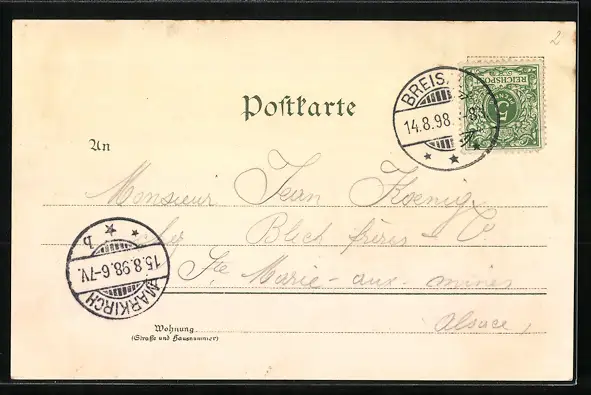 2
REICHSPOST
5
BREIS.
14.8.98. -8N
Postkarte
An
Monsieur Jean Koenig
Blech frères
Ste Marie-aux-mines
Alsace,
MARKIRCH
15.8.98.6-7V.
b
Wohnung
(Straße und Hausnummer)